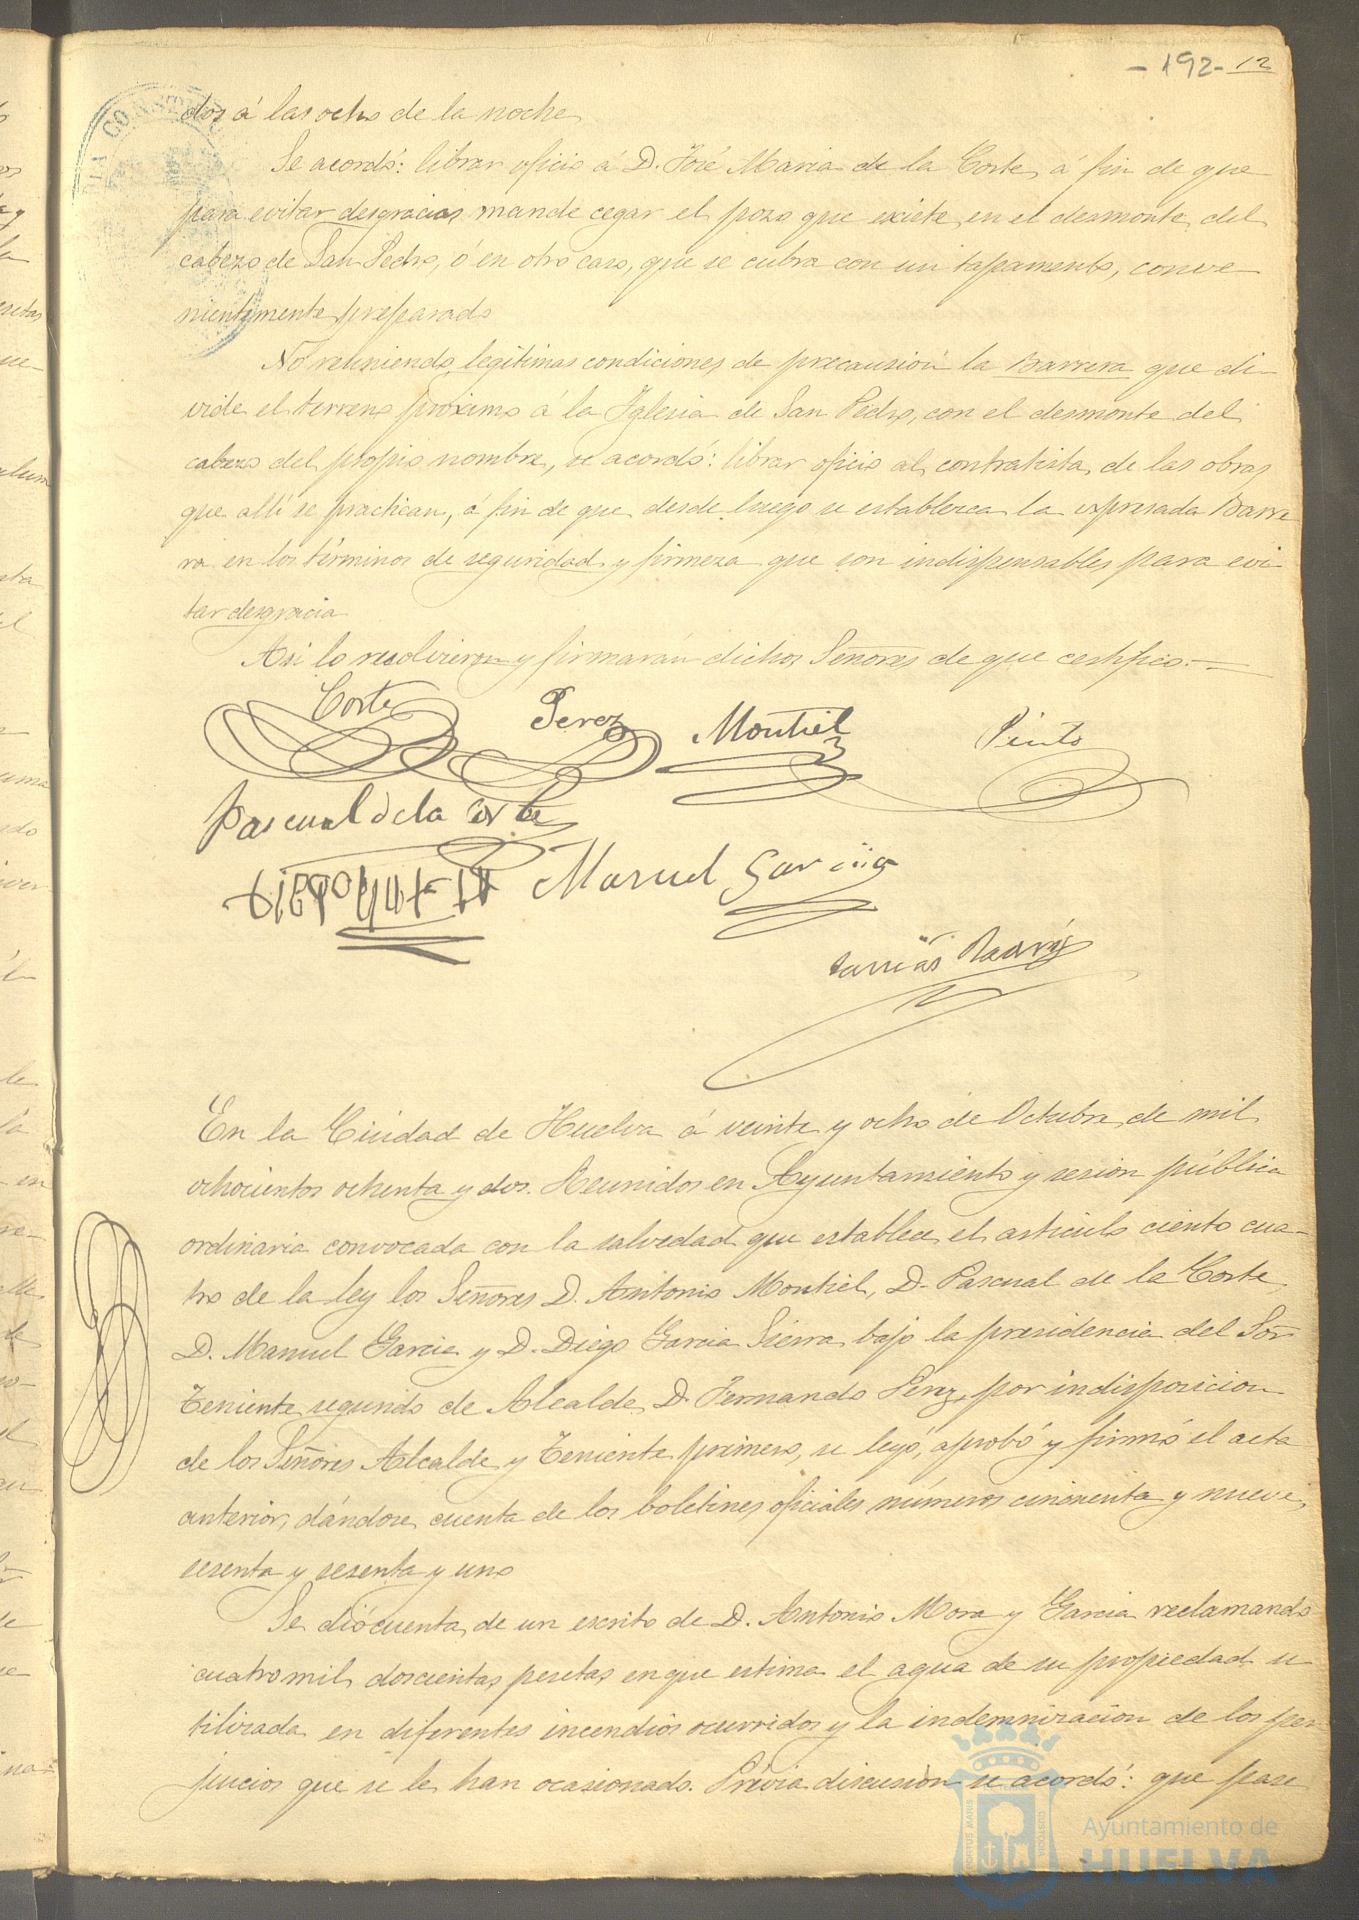 - 192 - 12
dos á las ocho de la noche
Se acordó: librar oficio á D. José Maria de la Corte, á fin de que
para evitar desgracias mande cegar el pozo que existe en el desmonte del
cabezo de San Pedro, ó en otro caso, que se cubra con un tapamento, conve
nientemente preparado
No reuniendo legitimas condiciones de precausión la Barrera que di-
vide el terreno próximo á la Iglesia de San Pedro, con el desmonte del
cabezo del propio nombre, se acordó: librar oficio al contratista de las obras
que allí se practican, á fin de que desde luego se establezca la expresada Barre
ra en los términos de seguridad y firmeza que son indispensables para evi-
tar desgracia
Asi lo resolvieron y firmarán dichos Señores de que certifico.
Corte Perez Montiel Pinto
Pascual de la Corte
Manuel Garcia
En la Ciudad de Huelva á veinte y ocho de Octubre de mil
ochocientos ochenta y dos. Reunidos en Ayuntamiento y sesion pública
ordinaria convocada con la salvedad que establece el articulo ciento cua-
tro de la ley los Señores D. Antonio Montiel, D. Pascual de la Corte,
D. Manuel Garcia y D. Diego Garcia Sierra bajo la presidencia del Sor
Teniente segundo de Alcalde D. Fernando Perez, por indisposicion
de los Señores Alcalde y Teniente primero, se leyó, aprobó y firmó el acta
anterior, dándose cuenta de los boletines oficiales números cincuenta y nueve,
sesenta y sesenta y uno
Se dió cuenta de un escrito de D. Antonio Mora y Garcia reclamando
cuatro mil doscientas pesetas en que estima el agua de su propiedad u
tilizada en diferentes incendios ocurridos y la indemnizacion de los per
juicios que se le han ocasionado. Prévia discusión se acordó: que pase
Ayuntamiento de
HUELVA